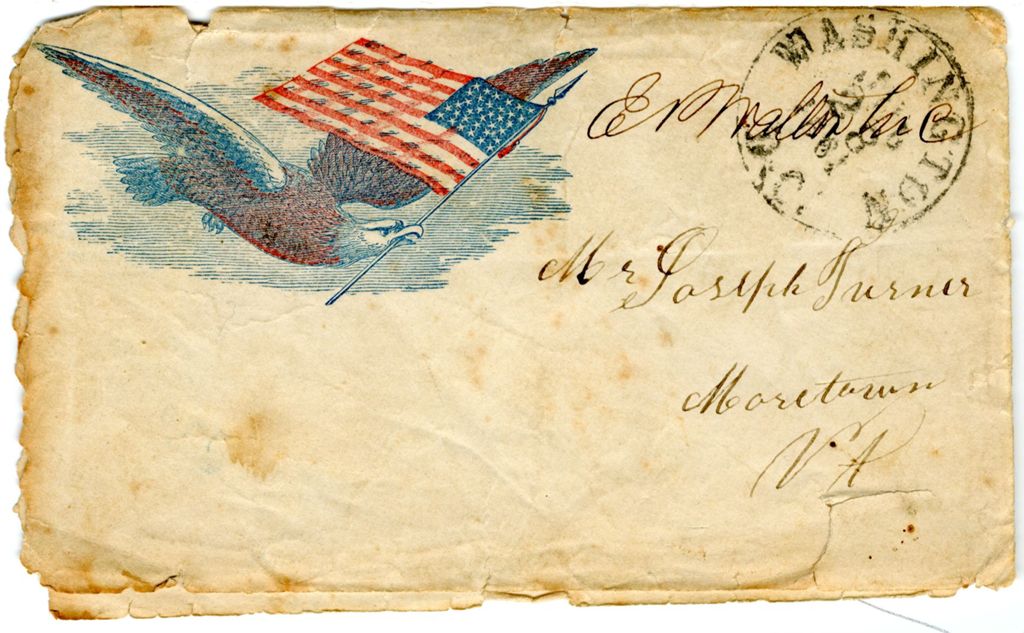 WASHINGTON
E P Walton M C
Mr Joseph Turner
Moretown
Vt